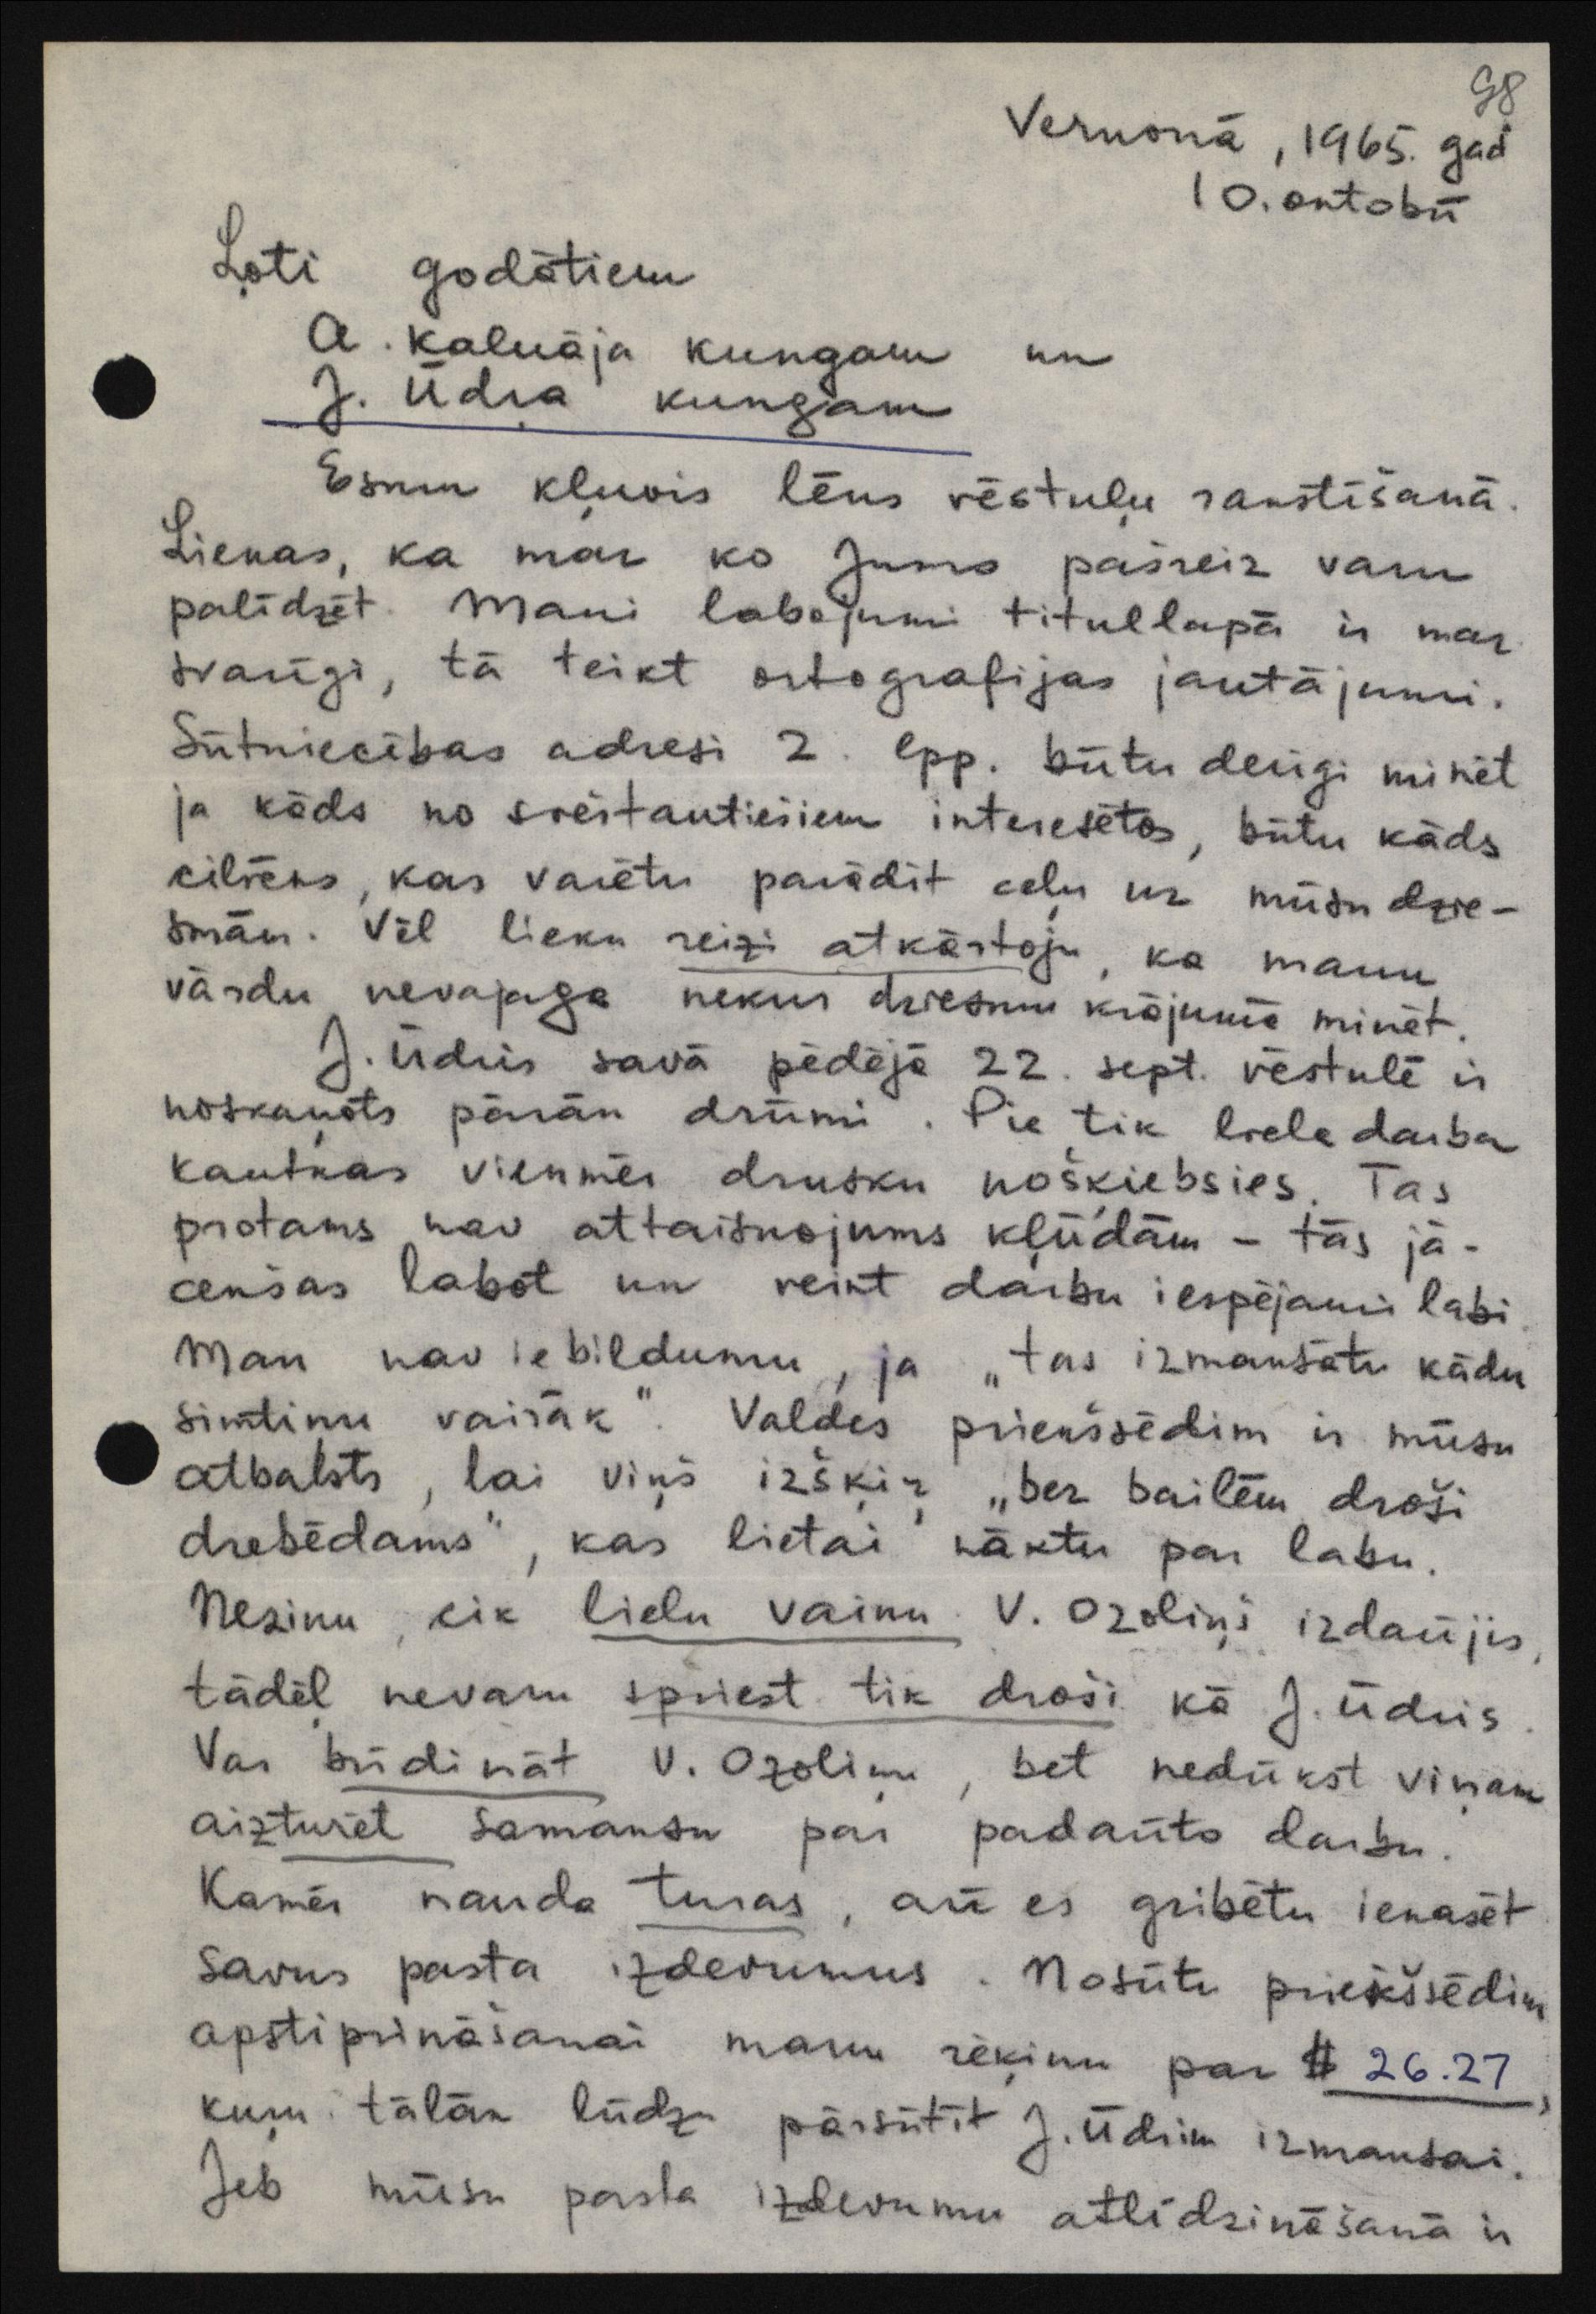 98
Vernonā, 1965. gad
10. oktobrī
Ļoti godātiem
A. Kalnāja kungam un
J. Ūdŗa kungam
Esmu kļuvis lēns vēstuļu rakstīšanā.
Liekas, ka maz ko Jums pašreiz varu
palīdzēt. Mani labojumi titullapā ir maz
svarīgi, tā teikt ortografijas jautājumi.
Sūtniecības adresi 2. lpp. būtu derīgi minēt
ja kāds no sveštautiešiem interesētos, būtu kāds
cilvēks, kas varētu parādīt ceļu uz mūsu dzie-
smām. Vēl lieku reizi atkārtoju, ka manu
vārdu nevajaga nekur dziesmu krājumā minēt.
J. Ūdris savā pēdējā 22. sept. vēstulē ir
noskaņots pārāk drūmi. Pie tik liela darba
kautkas vienmēr drusku nošķiebsies. Tas
protams nav attaisnojums kļūdām - tās jā-
cenšas labot un veikt darbu iespējami labi.
Man nav iebildumu, ja „tas izmaksātu kādu
simtiņu vairāk". Valdes priekšsēdim ir mūsu
atbalsts, lai viņš izšķiŗ „bez bailēm droši
drebēdams", kas lietai nāktu par labu.
Nezinu, cik lielu vainu V. Ozoliņš izdarījis,
tādēļ nevaru spriest tik droši kā J. Ūdris.
Var brīdināt V. Ozoliņu, bet nedrīkst viņam
aizturēt samaksu par padarīto darbu.
Kamēr nauda turas, arī es gribētu iekasēt
savus pasta izdevumus. Nosūtu priekšsēdim
apstiprināšanai manu rēķinu par $ 26.27,
kuŗu tālāk lūdzu pārsūtīt J. Ūdrim izmaksai.
Jeb mūsu pasta izdevumu atlīdzināšanā ir